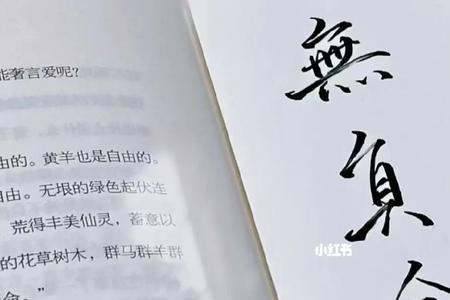 能奢言爱呢?
由的。黄羊也是自由的。
自由。无垠的绿色起伏连
荒得丰美仙灵，蓄意以
的花草树木，群马群羊群
命。”
無負
小红书